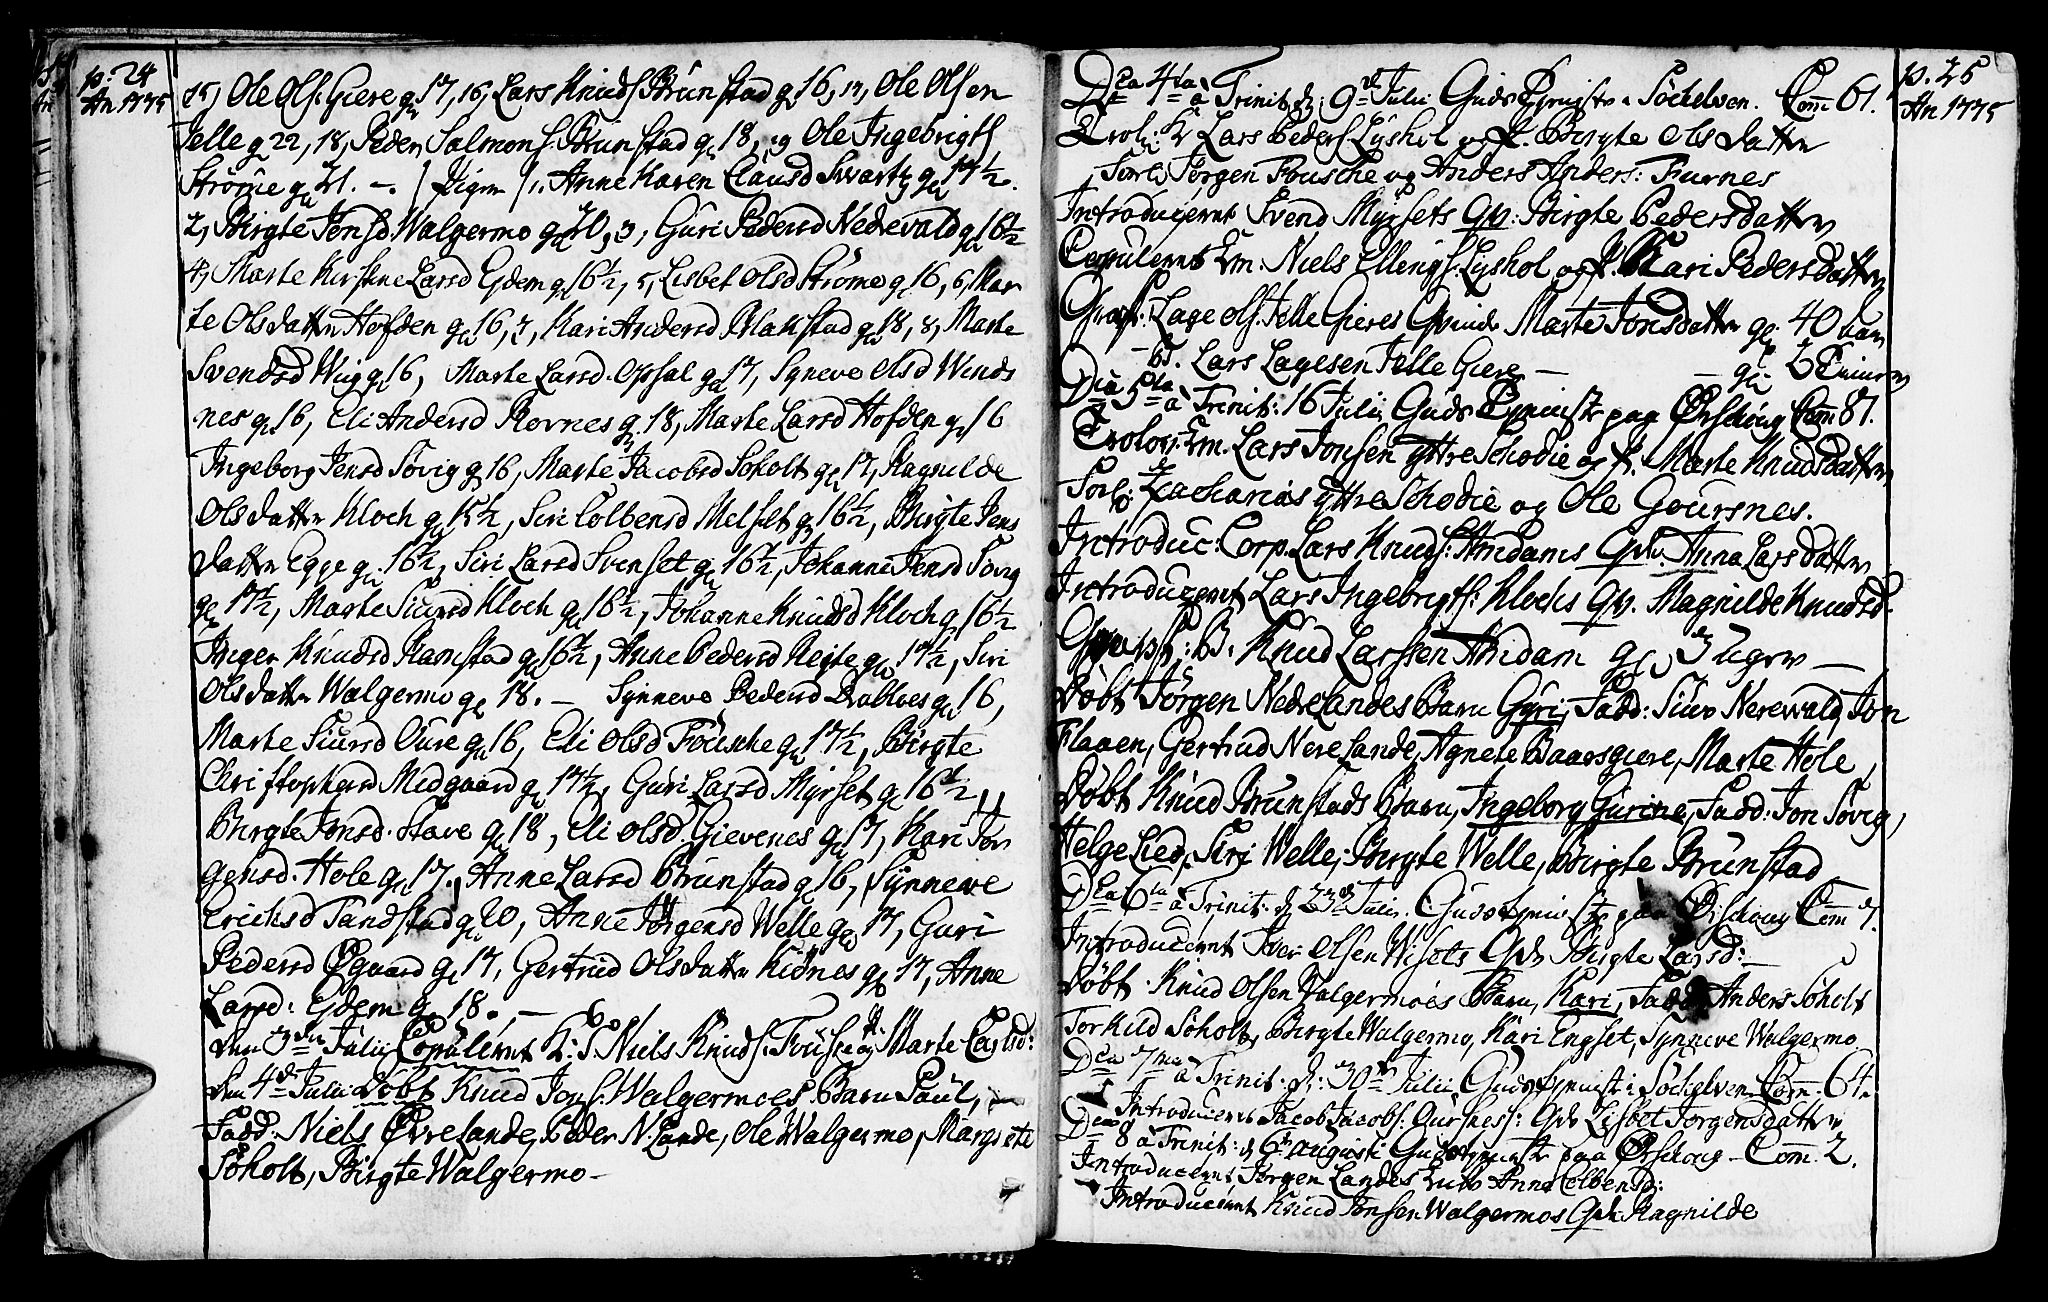 p. 24
An 1775
15, Ole Ols: Giere g 17, 16, Lars Knuds Brunstad g 16, 17, Ole Olsen
Jelle g 22, 18, Peder Salmons. Brunstad g 18, 19 Ole Ingebrigts
Strøme g 21. — Piger 1. Anne Karen Clausd Swartz g 17½.
2, Birgte Jensd Walgermo g 20, 3, Guri Pedersd Nedrevald g 16½
4, Marte Kirstine Larsd Ejdem g 16½, 5, Lisbet Olsd Strøme g 16, 6, Mar
te Olsdattr Hofden g 16, 7, Kari Andersd Blakstad g 18, 8, Marte
Svendsd Wiig g 16, Marte Larsd. Opsal g 17, Syneve Olsd Winds
nes g 16, Eli Andersd Rovnes g 18, Marte Larsd Hofden g 16
Ingeborg Jensd Søvig g 16, Marte Jacobsd Søholt g 17, Ragnilde
Olsdattr Kloch g 15½, Siri Colbensd Melset g 16½, Birgte Jens
dattr Egge g 16½, Siri Larsd Svenset g 16½, Johanne Jensd Søvig
g 17½, Marte Siursd Kloch g 16½, Johanne Knudsd Kloch g 16½
Inger Knudsd Ramstad g 16½, Anne Pedersd Rejte g 17½, Siri
Olsdattr Walgermo g 18. — Synneve Pedersd g 16,
Marte Siursd Oure g 16, Eli Olsd Fousche g 17½, Birgte
Christophersd Midgaard g 17½, Guri Larsd Myrset g 16½,
Birgte Jonsd. Stave g 18, Eli Olsd. Gievenes g 17, Kari Jør
gensd. Hole g 17, Anne Larsd Brunstad g 16, Synneve
Ericksd Tandstad g 20, Anne Jørgensd Welle g 17, Guri
Pedersd Øgaard g 17, Gertrud Olsdattr Kidnes g 17, Anne
Larsd: Ejdem g 18. —
den 3die Julii Copuleret K: S. Niels Knuds. Fousche og P. Marte Carlsd:
den 4de Julii Døbt Knud Jons. Walgermoes Barn Paul,
Fadd: Niels Øvrelande, Peder N. Lande, Ole Walgermo, Margrete
Søholt, Birgte Walgermo —
p. 25
An 1775
Dca 4ta a Trinit. d. 9de Julii Guds i Søchelven. Com 61.
Trol: K Lars Peders Lyshol og P. Birgte Olsdattr
Forl. Jørgen Fousche og Anders Anders: Furnes
Introduceret Svend Myrsets Qv: Birgte Pedersdattr
Copuleret Km. Niels Ellings. Lyshol og P. Kari Pedersdattr
Lage Ols. Jelle Gieres Qvinde Marte Jonsdattr g 40
B. Lars Lagesen Jelle Giere — g. 6
Dca 5ta a Trinit: 16 Julii Guds paa Ørschoug Com 87.
Trolov. Km. Lars Jonsen yttre Schodie og P. Marte Knudsdattr
Forl: Zacharias yttre Schodie og Ole Goursnes.
Introduc: Corp. Lars Knuds: Amdams Qv. Anna Larsdattr
Introduceret Lars Ingebrigts: Klochs Qv. Magnilde Knudsd.
B. Knud Larssen Amdam g 3 Uger —
Døbt Jørgen Nedrelandes Barn Gyri, Fadd: Siur Nerevald, Jon
Flaaen, Gertrud Nerelande, Agnete Baarsgiere, Marte Hole
Døbt Knud Brunstads Barn, Ingeborg Gurine, Fadd: Jon Søvig,
Helge Lied, Siri Welle, Birgte Welle, Birgte Brunstad
Dca 6ta a Trinit: d 23de Julii. paa Ørschoug Com 7.
Introduceret Iver Olsen Wisets Qv Birgte Larsd:
Døbt Knud Olsen Walgermoes Barn, Kari, Fadd Anders Søholt
Torkild Søholt, Birgte Walgermo, Kari Engset, Synneve Walgermo
Dca 7ma a Trinit: d: 30te Julii i Søchelven Com. 64.
Introduceret Jacob Jacobs: Oursnes: Qv Lisbet Jørgensdattr
8 a Trinit: d 6te Augusti paa Ørschoug — Com. 2.
Introduceret Jørgen Landes Anne Elbensd:
Introduceret Knud Jonsen Walgermos Qv Ragnilde